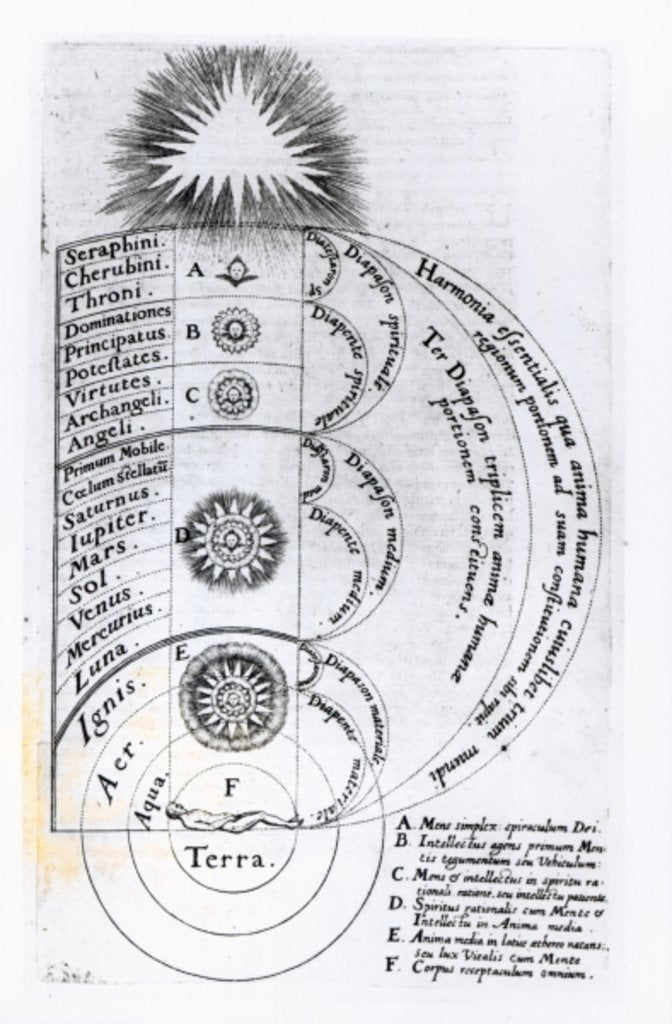 Seraphini.
Cherubini.
Throni.
Dominationes
Principatus.
Poteſtates.
Virtutes.
Archangeli.
Angeli.
Primum Mobile
Cœlum Stellatū
Saturnus.
Iupiter.
Mars.
Sol.
Venus.
Mercurius.
Luna.
Ignis.
Aer.
Aqua.
Terra.
A
B
C
D
E
F
Diateſſaron sp
Diapaſon spirituale.
Diapente spirituale
Diateſſaron med
Diapaſon medium.
Diapente medium.
Diapaſon materiale
Diapente materiale.
Ter Diapaſon triplicem animæ humanæ
portionem conſtituens.
Harmonia eſſentialis qua anima humana cuiuslibet trium mundi
regionum portionem ad suam conſtitutionem sibi rapit
A. Mens simplex: spiraculum Dei.
B. Intellectus agens primum Men-
tis tegumentum seu Vehiculum:
C. Mens & intellectus in spiritu ra-
tionali ratione, seu intellectu patiente.
D. Spiritus rationalis cum Mente &
Intellectu in Anima media.
E. Anima media in latice æthereo natans:,
seu lux Vitalis cum Mente
F. Corpus receptaculum omnium.